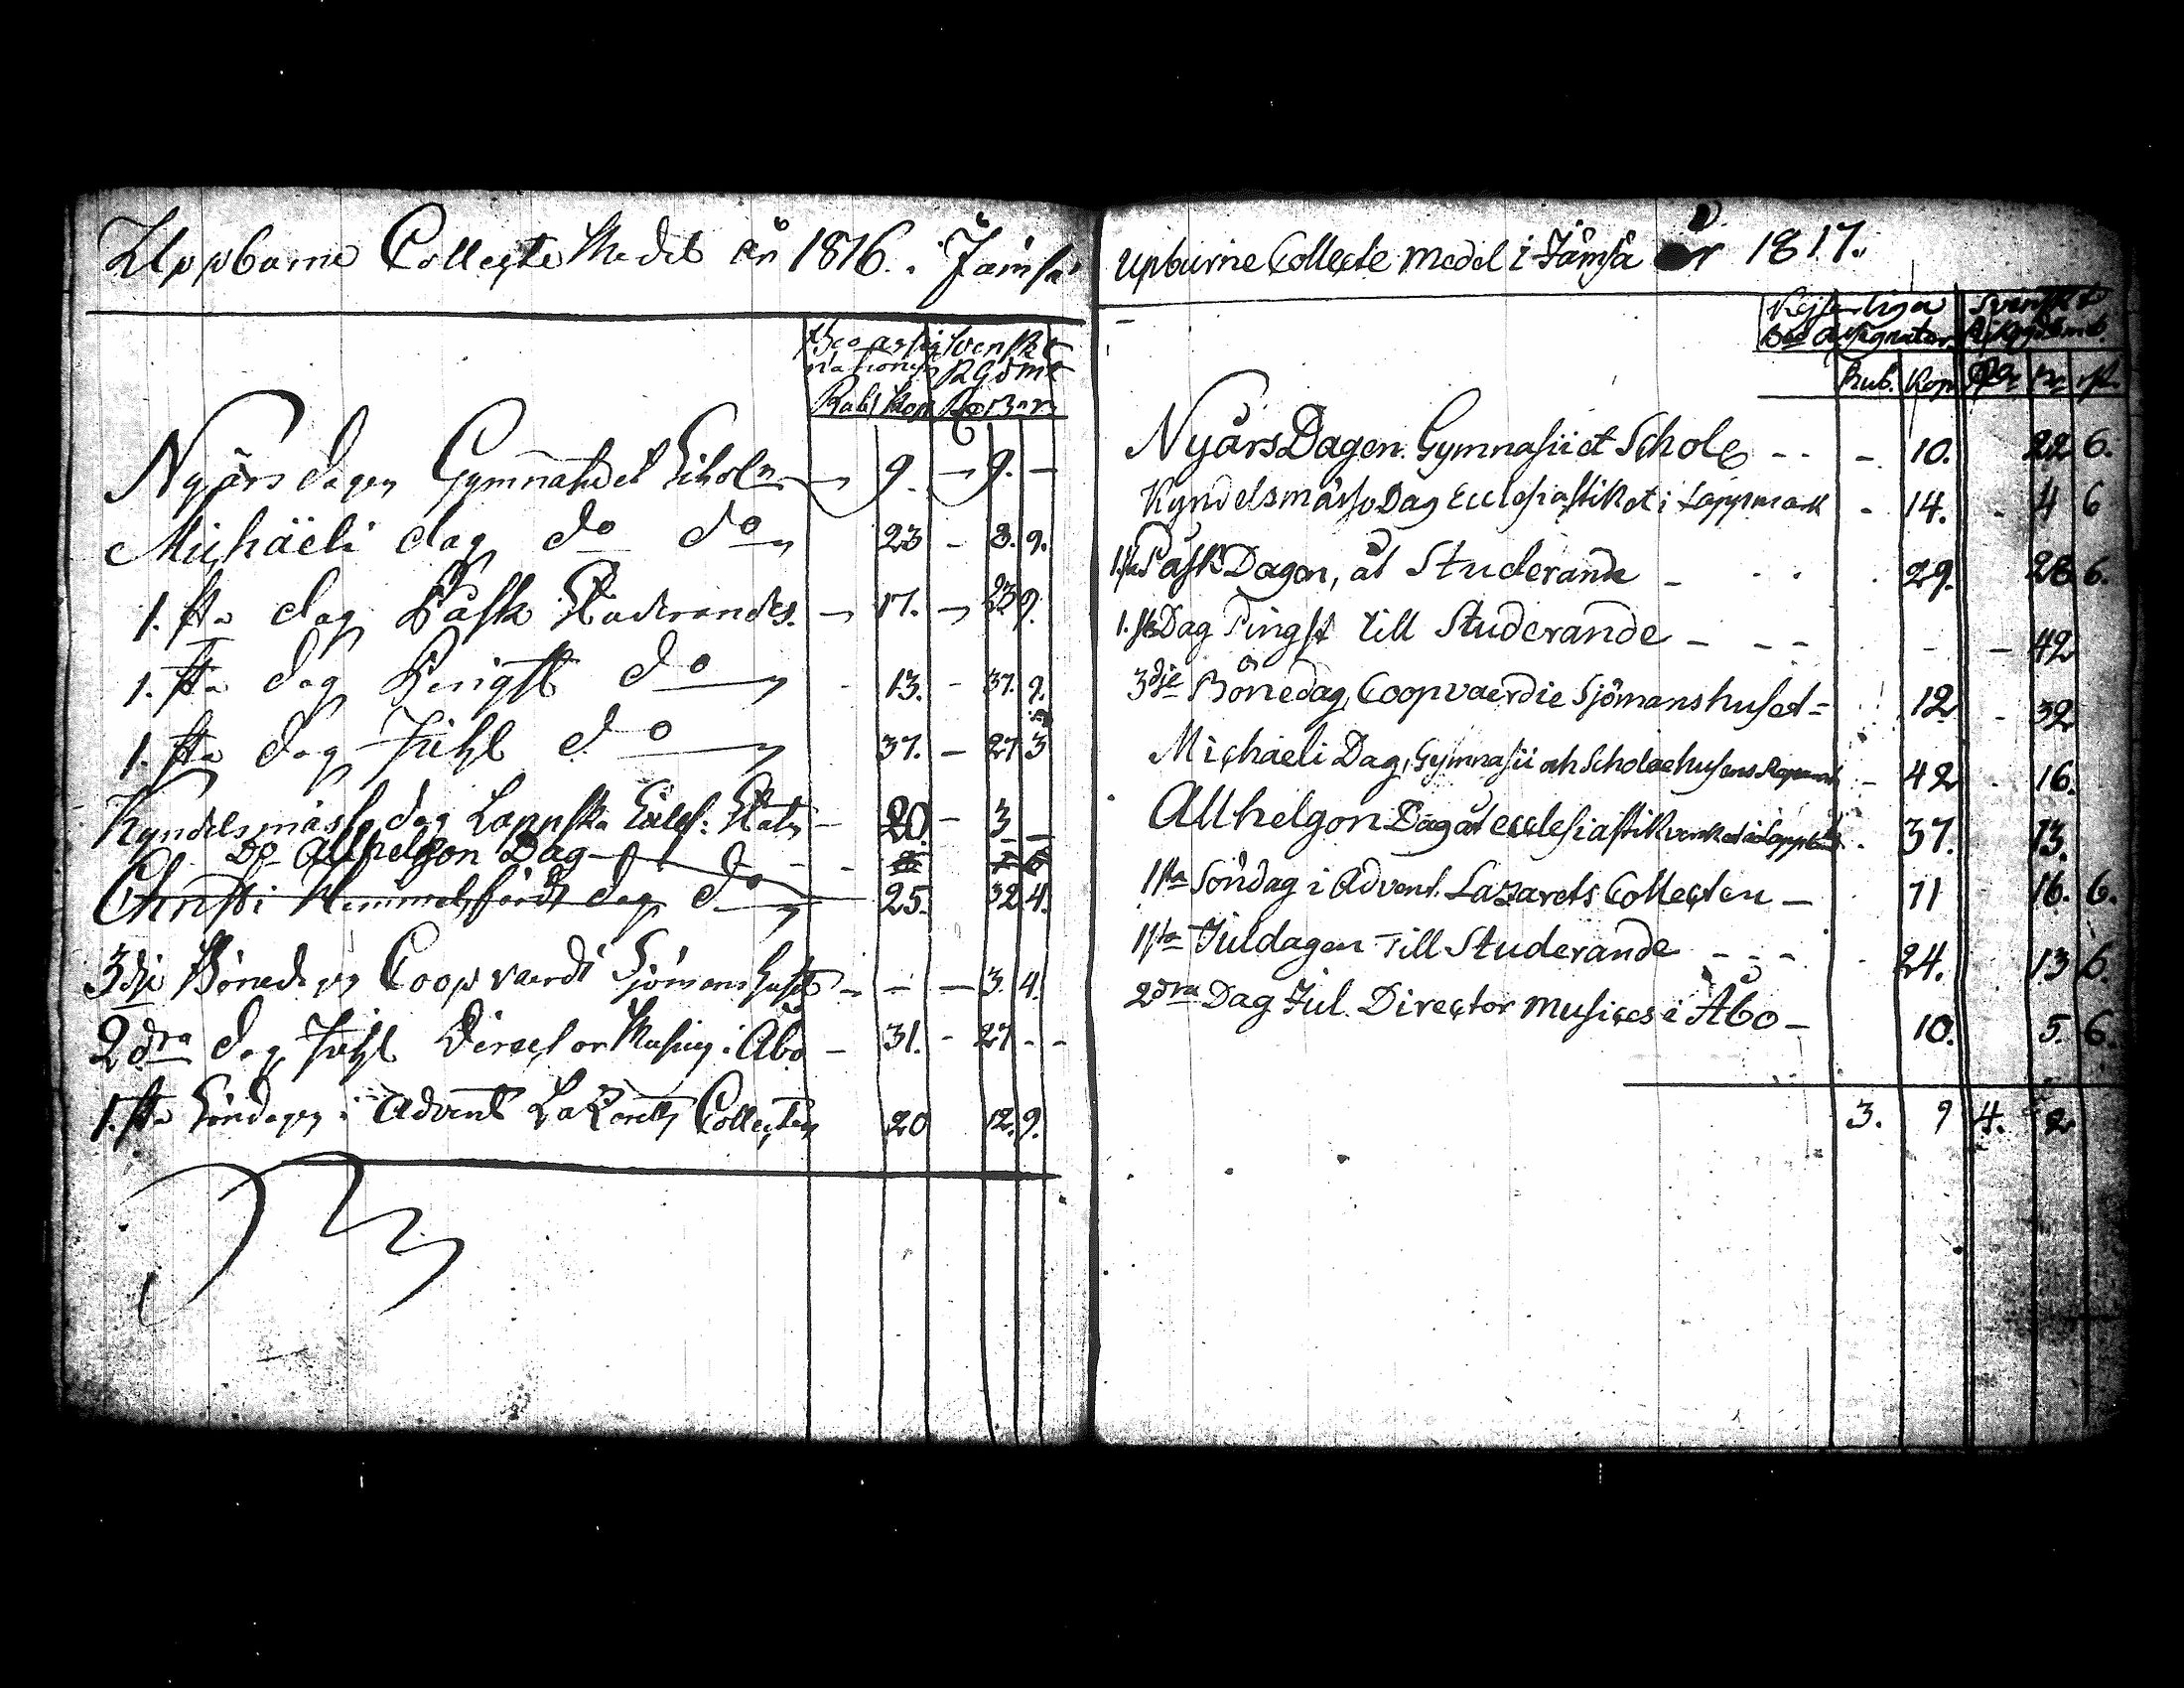 Uppburne Collecte Medel år 1816. i Jämsä
Bco assig Svenskt
nationer RGdmt
Rub Kop Rd s rs
Nyårs dagen Gymnasii et Scholæ — 9. — 9. —
Michäeli dag do do 23 — 3. 9.
1.sta dag Påsk Studerandes. — 17. — 23 9.
1.sta dag Pingst do - 13. — 37. 9.
1.sta dag Juhl do 37. — 27 3
Kyndelsmässo dag Lappska Eccles: Staten — 20 — 3 —
Do Allhelgon Dag
Christi Himmelsfärds dag do 25. 32 4.
3dje Bönedagen Coopvaerdi Sjömans huset — — — 3. 4.
2dra dag Juhl Director Musices i Åbo — 31. - 27 - -
1.sta Söndagen i Advent Lazaretts Collecten 20 12. 9.
Upburne Collecte medel i Jämsä år 1817.
Kejserliga Svenskt
Bco Assignator. Riksgäldmt.
Rub. Kop. Rd s rst.
Nyårs Dagen. Gymnasii et Scholæ - - — 10. 22 6.
Kyndelsmässo Dag Ecclesiastiket i Lappmark - 14. - 4 6
1.sta Påsk Dagen, åt Studerande — 29. 28 6.
1.sta Dag Pingst till Studerande — — — — 42
3dje Bönedag, Coopvaerdie Sjömanshuset = 12 - 32
Michaeli Dag, Gymnasii och Scholaehusens Reparat — 42 - 16.
Allhelgon Dag åt ecclesiastikverket i Lappmk - 37. 13.
1sta Söndag i Advent. Lazarets Collecten — 11 16. 6.
1sta Juldagen till Studerande - - - 24. 13 6.
2dra Dag Jul. Director Musices i Åbo — 10. 5. 6.
3. 9 4. 2